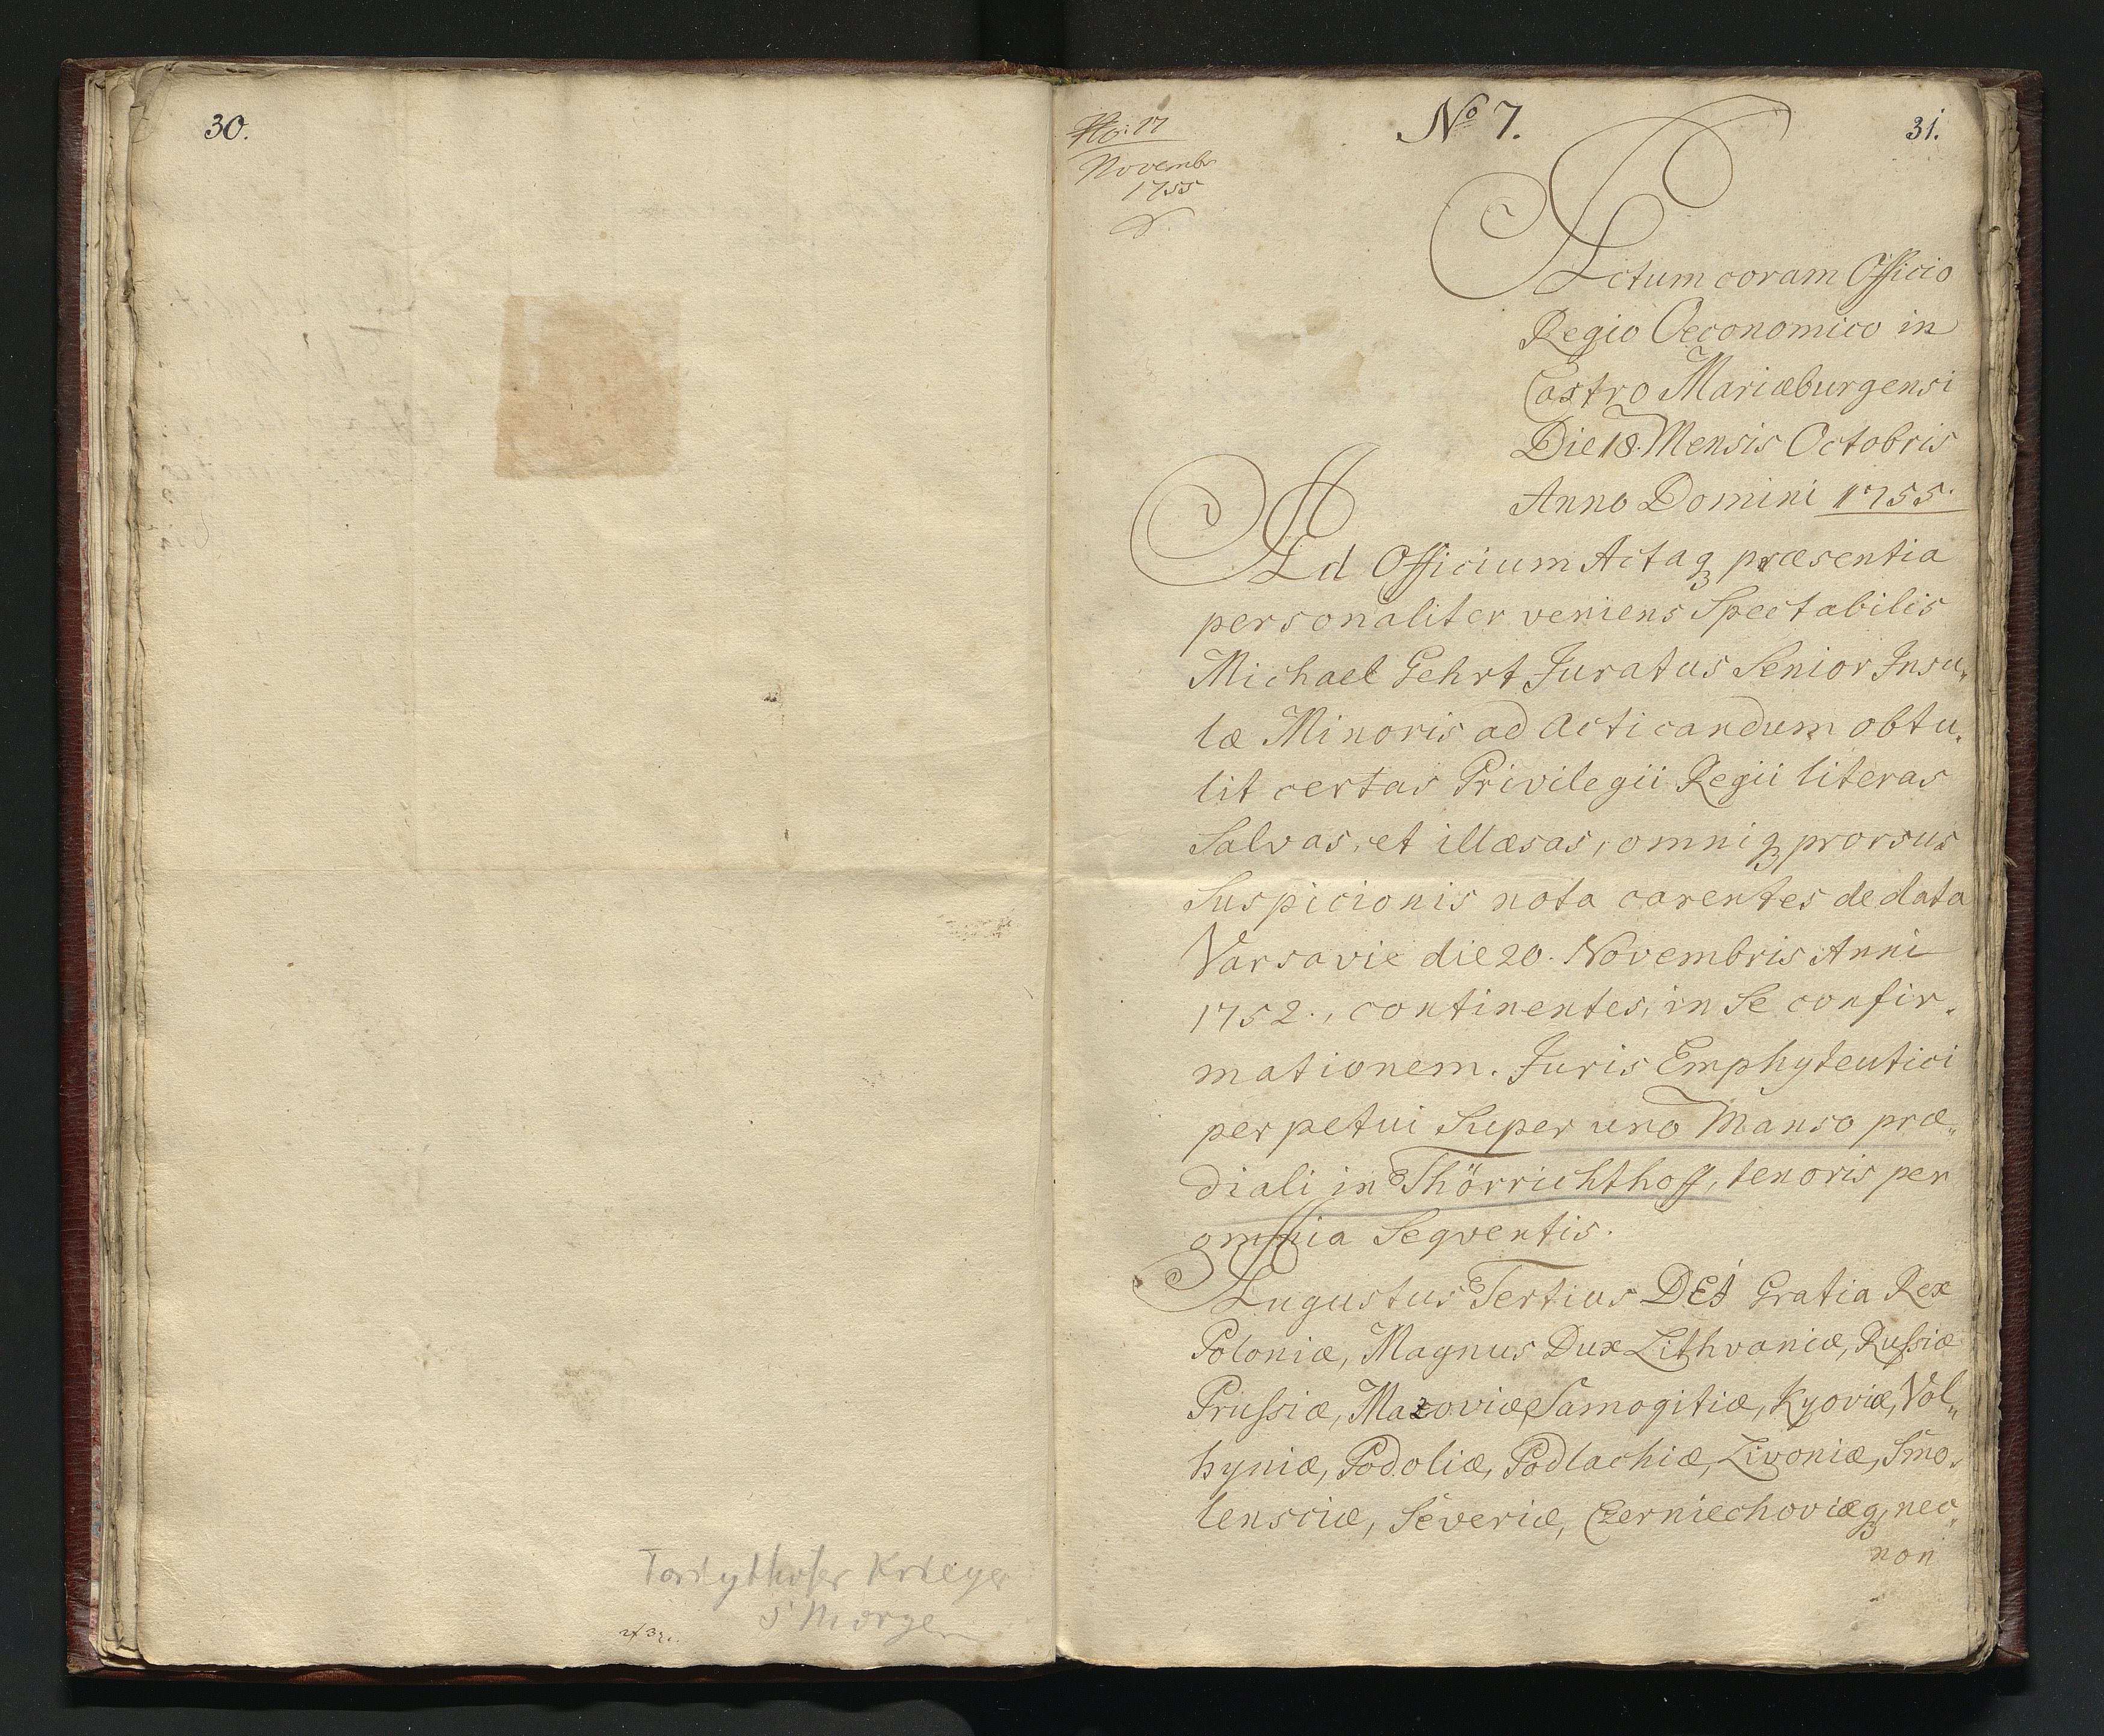 30.
Morge
No 7.
31.
17
Novembr
1755
Actum coram Officio
Regio Oeconomico in
Castro Mariæburgensi
Die 18. Mensis Octobris
Anno Domini 1755.
Ad Officium Actaqꝫ præsentia
personaliter veniens Spectabilis
Michael Gehrt Juratus Senior Insu„
læ Minoris ad Acticandum obtu„
lit certas Privilegii Regii literas
Salvas, et illæsas, omniqꝫ prorsus
Suspicionis nota carentes de data
Varsavie die 20. Novembris Anni
1752., continentes, in Se confir„
mationem. Juris Emphyteutici
perpetui Super uno Manso præ„
diali in Thörrichthoff, tenoris per
omnia Seqventis.
Augustus Tertius DEI Gratia Rex
Poloniæ, Magnus Dux Lithvaniæ, Rußiæ
Prußiæ, Mazoviæ, Samogitiæ, Kyoviæ, Vol„
hyniæ, Podoliæ, Podlachiæ, Livoniæ, Smo„
lensciæ, Severiæ, Czerniechoviæqꝫ, nec„
non